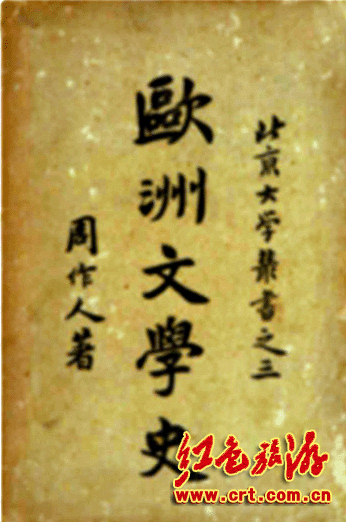 北京大学叢書之三
歐洲文學史
周作人著
红色旅游
www.crt.com.cn